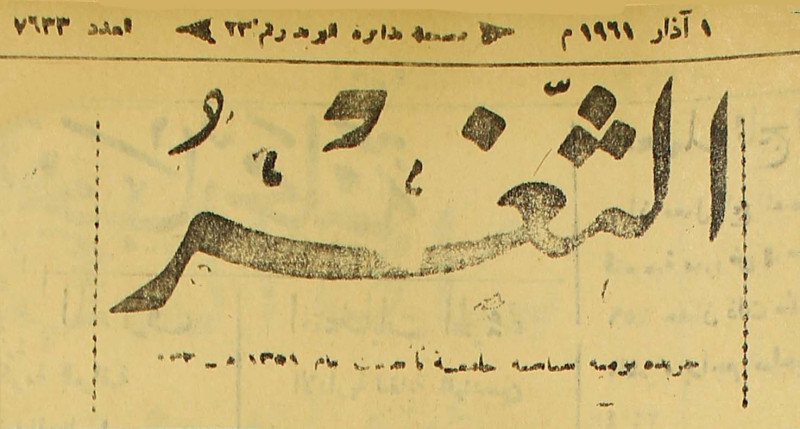 ١ آذار ١٩٦١ م دائرة البريد رقم ٢٣ العدد ٧٦٣٣
الثَّغْرُ
جريدة يومية سياسية تأسست عام ١٣٥١ هـ -